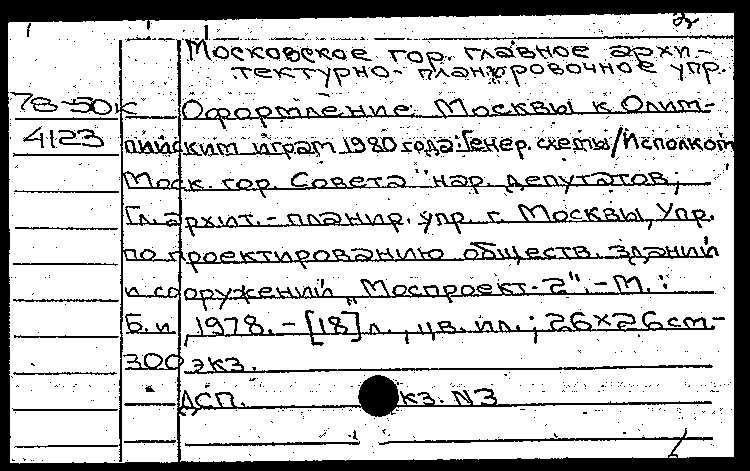 Московское гор. главное архи-
тектурно-планировочное упр.
78-50к Оформление Москвы к Олим-
4123 пийским играм 1980 года: Генер. схемы / Исполком
Моск. гор. Совета нар. депутатов;
Гл. архит.-планир. упр. г. Москвы, Упр.
по проектированию обществ. зданий
и сооружений "Моспроект-2". - М.:
Б. и., 1978. - [18] л., цв. ил.; 26×26 см. -
300 экз.
ДСП. кз. N3